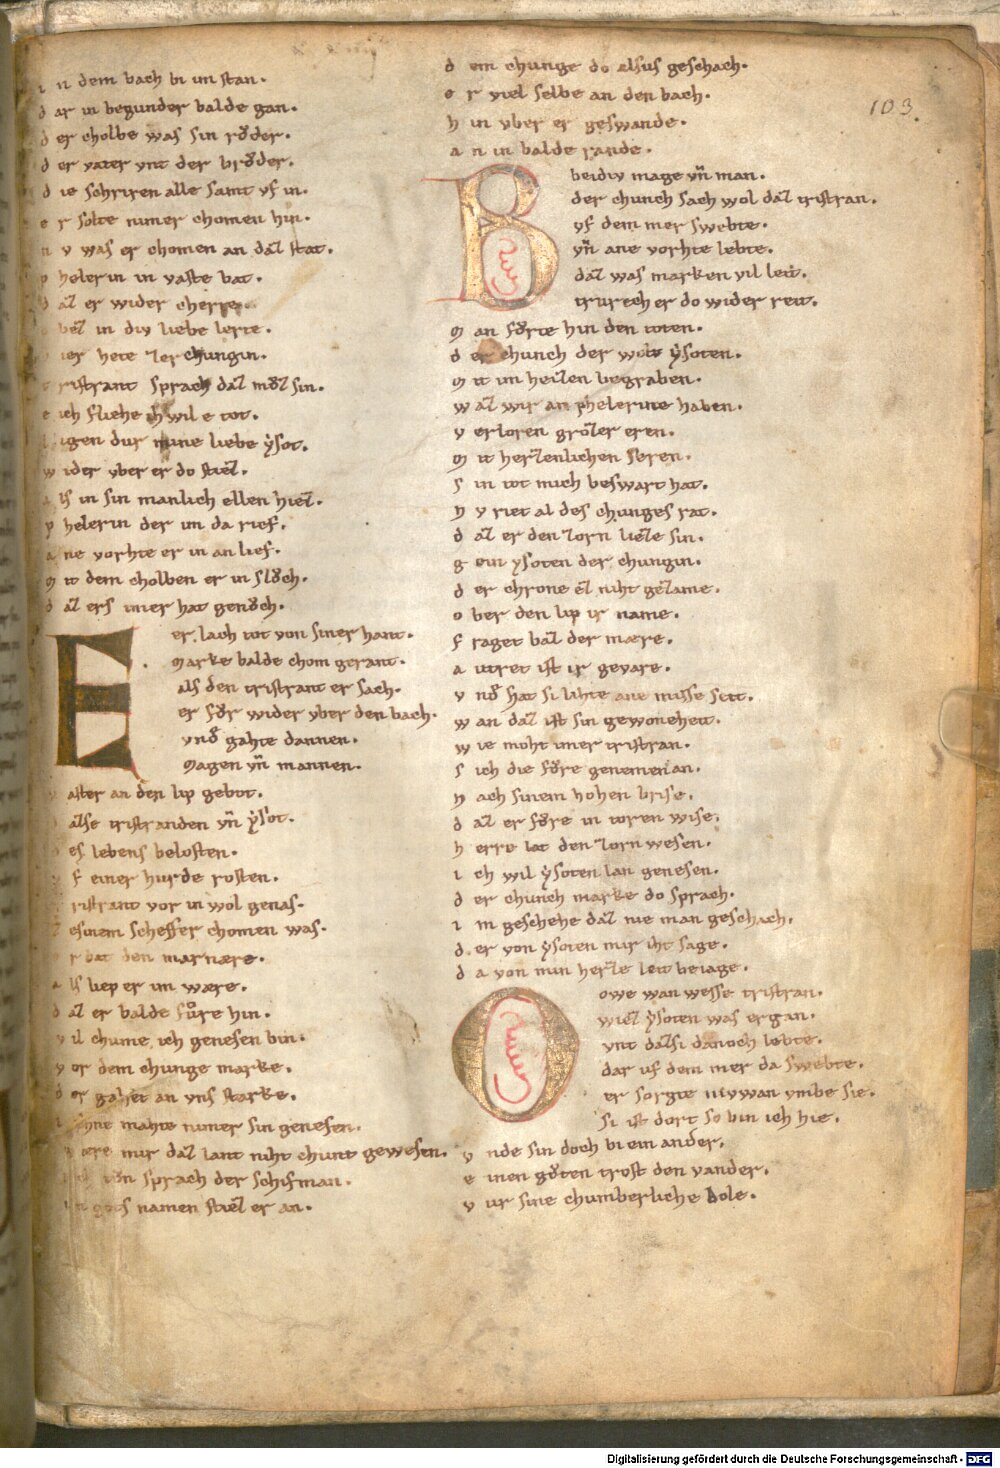 i n dem bach bi im stan.
d ar in begunder balde gan.
d er cholbe was sin rͦder.
d er vater vnt der brͦder.
d ie schriren alle samt vf in.
e r solte nimer chomen hin.
n v was er chomen an daz stat.
p helerin in vaste bat.
d az er wider cherre.
bez in div liebe lerte.
hete zer chungin.
t ristrant sprach daz mͦz sin.
e ich fliehe ich wil e tot.
l igen dur mine liebe ẏsot.
w ider vber er do stiez.
a ls in sin manlich ellen hiez.
p helerin der im da rief.
a ne vorhte er in an lief.
m it dem cholben er in slͦch.
d az ers imer hat genͦch.
E er lach tot von siner hant.
marke balde chom gerant.
als den tristrant er sach.
er fͦr wider vber den bach.
vnd gahte dannen.
magen vn̄ mannen.
v aster an den lip gebot.
d azse tristranden vn̄ ẏsot.
d es lebens belosten.
v f einer hurde rosten.
t ristrant vor in wol genas.
z esinem scheffer chomen was.
e r bat den marnære.
a ls liep er im wære.
d az er balde fͦre hin.
v il chume ich genesen bin.
v or dem chunge marke.
d er gahet an vns starke.
i chne mahte nimer sin genesen.
w ære mir daz lant niht chunt gewesen.
sprach der schifman.
i n gots namen stiez er an.
d em chunge do alsus geschach.
e r viel selbe an den bach.
h in vber er geswande.
a n in balde rande.
B beidiv mage vn̄ man.
der chunch sach wol daz tristran.
vf dem mer swebte.
vn̄ ane vorhte lebte.
daz was marken vil leit.
trurech er do wider reit.
m an fͦrte hin den toten.
d er chunch der wolt ẏsoten.
m it im heizen begraben.
w az wir an phelerine haben.
v erloren grozer eren.
m it herzenlichen seren.
s in tot mich beswart hat.
n v riet al des chunges rat.
d az er den zorn lieze sin.
g ein ẏsoten der chungin.
d er chrone ez niht gezame.
o ber den lip ir name.
f raget baz der mære.
a utret ist ir gevare.
v nd hat si lihte ane missetit.
w an daz ist sin gewoneheit.
w ie moht imer tristran.
s ich die fͦre genemen an.
n ach sinem hohen brise.
d az er fͦre in toren wise.
h erre lat den zorn wesen.
i ch wil ẏsoten lan genesen.
d er chunch marke do sprach.
i m geschehe daz nie man geschach.
d er von ẏsoten mir iht sage.
d a von min herze leit beiage.
O owe wan wesse tristran.
wiez ẏsoten was ergan.
vnt daz si danoch lebte.
dar uf dem mer da swebte.
er sorgte niv wan vmbe sie.
si ist dort so bin ich hie.
v nde sin doch bi ein ander.
e inen gͦten trost den vander.
v ur sine chumberliche dole.
103.
Digitalisierung gefördert durch die Deutsche Forschungsgemeinschaft - DFG